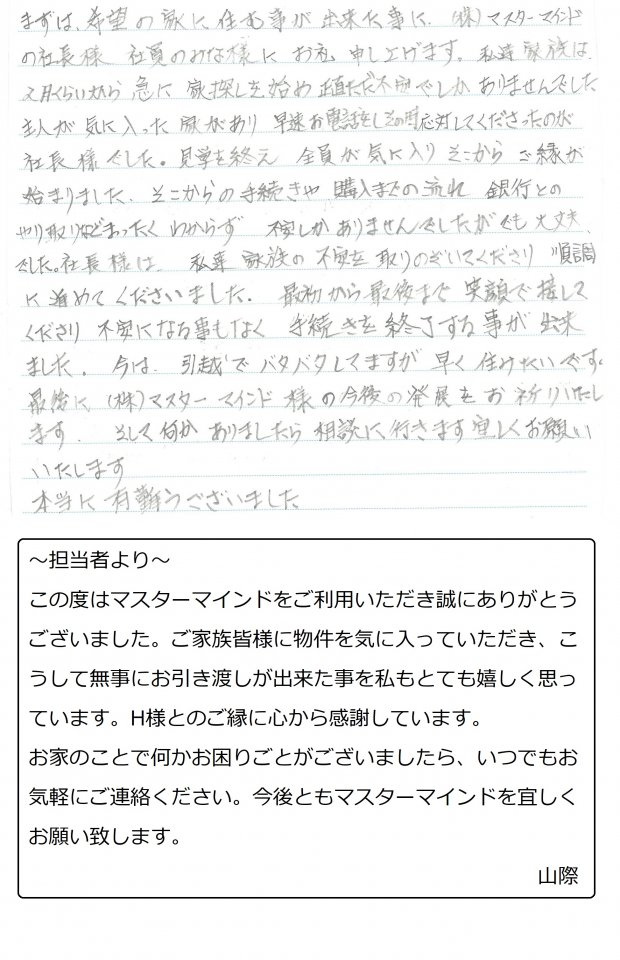 まずは、希望の家に住む事が出来た事に、(株)マスターマインド
の社長様 社員のみな様に お礼 申し上げます。私達 家族は、
2月くらいから 急に 家探しを始め 正直ただ不安でしか ありませんでした
主人が 気に入った 家があり 早速お電話をしその時応対してくださったのが
社長様でした。見学を終え 全員が気に入り そこから ご縁が
始まりました。そこからの手続きや 購入までの流れ 銀行との
やり取りなどまったく わからず 不安しか ありませんでしたがでも 大丈夫
でした。社長様は、私達 家族の 不安を 取りのぞいてくださり 順調
に 進めてくださいました。最初から最後まで 笑顔で接して
くださり 不安になる事もなく 手続きを 終了する事が 出来
ました。今は、引越しでバタバタしてますが 早く住みたいです。
最後に (株)マスターマインド 様の今後の発展をお祈りいたし
ます。そして何か ありましたら 相談に行きます 宜しくお願い
いたします
本当に 有難うございました
～担当者より～
この度はマスターマインドをご利用いただき誠にありがとう
ございました。ご家族皆様に物件を気に入っていただき、こ
うして無事にお引き渡しが出来た事を私もとても嬉しく思っ
ています。H様とのご縁に心から感謝しています。
お家のことで何かお困りごとがございましたら、いつでもお
気軽にご連絡ください。今後ともマスターマインドを宜しく
お願い致します。
山際